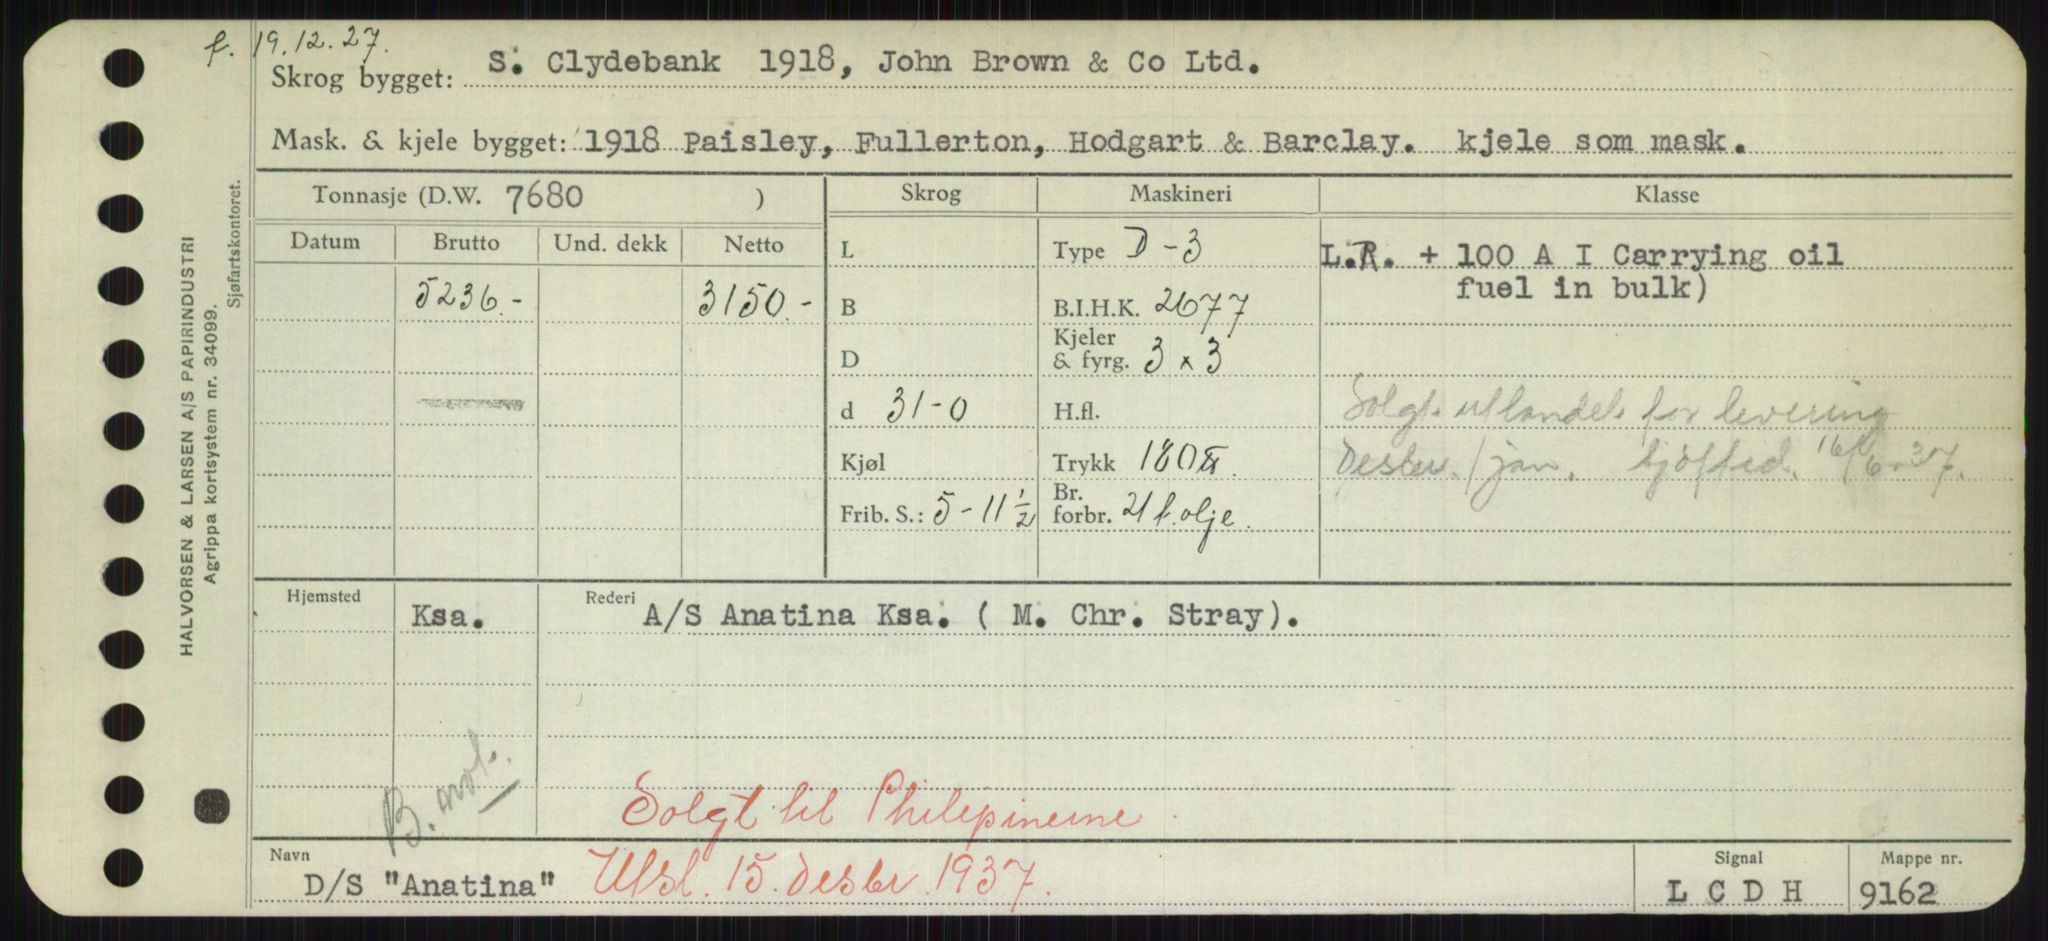 f. 19.12.27.
Skrog bygget: S. Clydebank 1918, John Brown & Co Ltd.
Mask. & kjele bygget: 1918 Paisley, Fullerton, Hodgart & Barclay. kjele som mask.
Tonnasje (D.W. 7680 ) Skrog Maskineri Klasse
Datum Brutto Und. dekk Netto
L Type D-3 L.R. + 100 A I Carrying oil
fuel in bulk)
5236.- 3150.- B B.I.H.K. 2677
D Kjeler & fyrg. 3 x 3
d 31-0 H.fl. Solgt utlandet for levering
Kjøl Trykk 180 Desbr./jan. 16/6-37.
Frib. S.: 5-11 1/2 Br. forbr. 21 t. olje.
Hjemsted Ksa. Rederi A/S Anatina Ksa. ( M. Chr. Stray).
B. not.
Solgt til Philipinerne.
Navn D/S "Anatina" Utsl. 15. desbr. 1937. Signal L C D H Mappe nr. 9162
HALVORSEN & LARSEN A/S PAPIRINDUSTRI
Agrippa kortsystem nr. 34099.
Sjøfartskontoret.